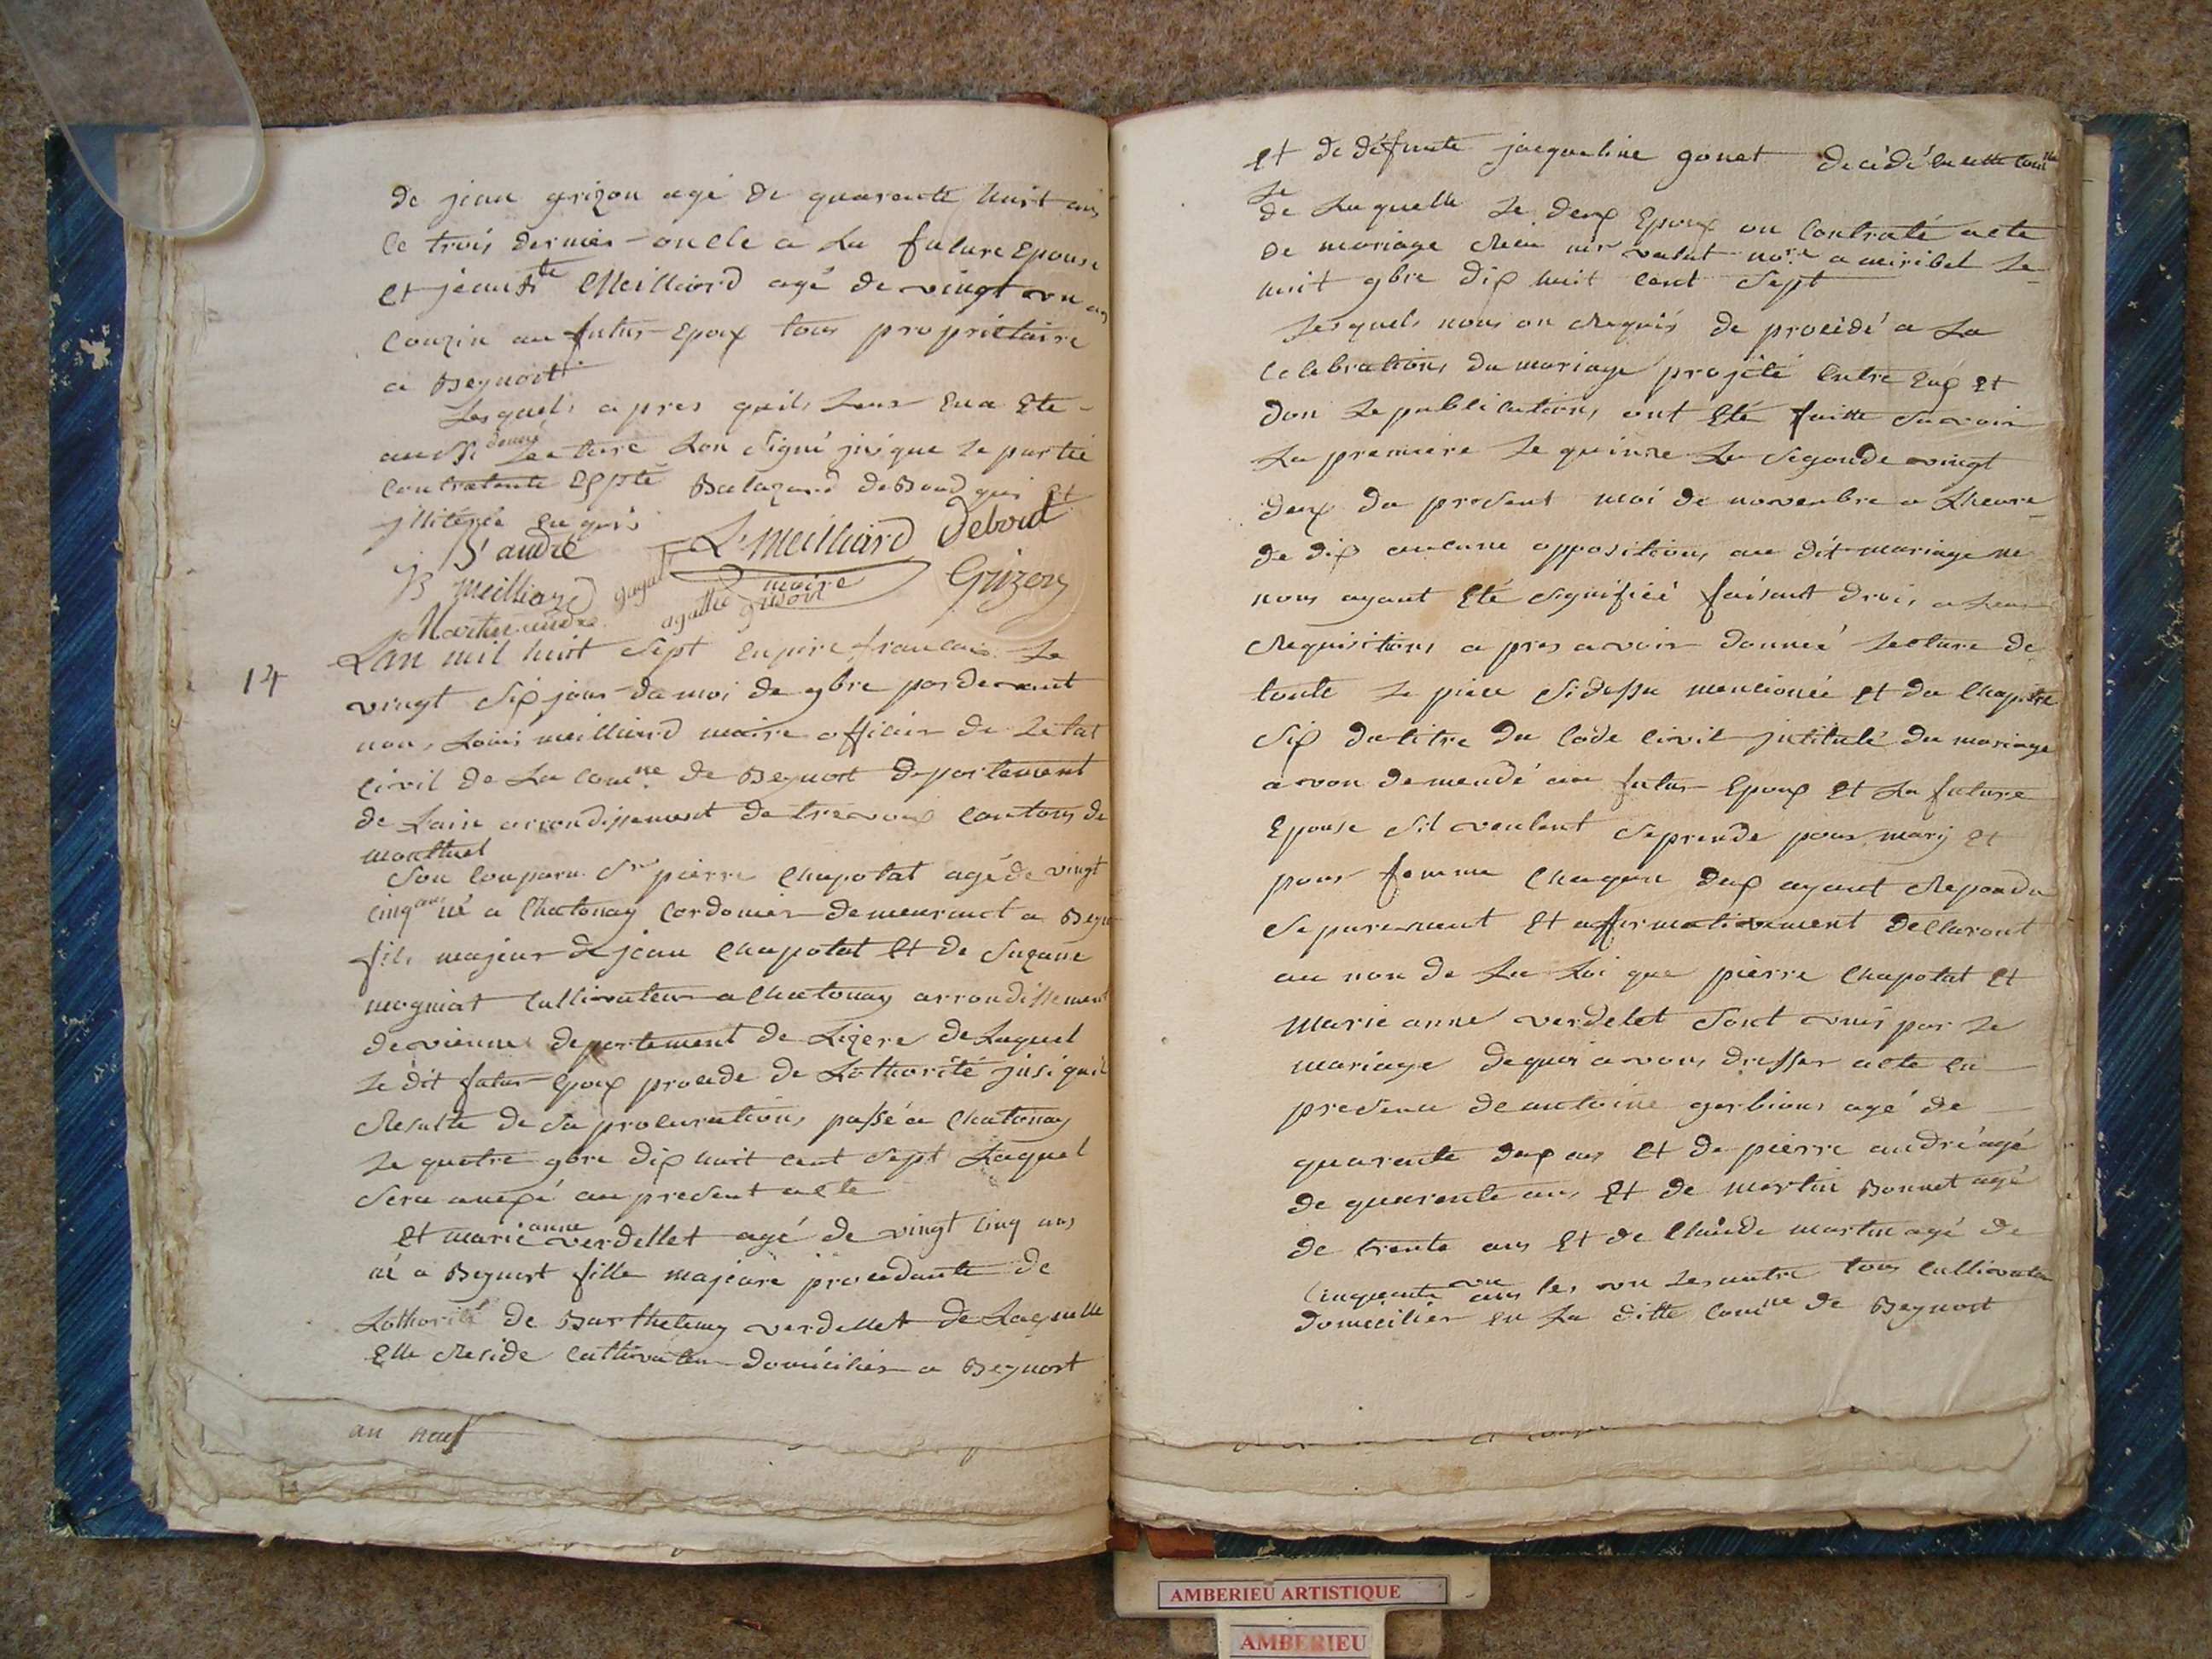 de jean grizon agé de quarente huit ans
ce trois dernier oncle a La future Epouse
Et jean Bte Meilliard agé de vingt un ans
Couzin au futur Epoux tous propriétaire
a Beynost
Lesquels apres quils Leur En a Ete
aussi donné Lecture Lon Signé jnsi que Le partie
Contratente Exepté Balazard deBoud qui Et
jlliterée enquis
P andré L. Meilliard Debout
JB Meilliard maire Grizon
Martin andré agathe grisont
14
Lan mil huit Sept Enpire francais Le
vingt Six jour du moi de 9bre pardevant
nou Louis meilliard maire officier de Letat
Civil de La comne de Beynost departement
de Lain arrondissement de trevoux Cantons de
montluel
Son Conparu Sr pierre Chapotat agé de vingt
cinq ans né a Chatonay Cordonier demeurant a Beyn
fils majeur de jean Chapotat Et de Suzane
mogniat Cultivateur a Chatonay arrondissement
de vienne departement de Lizere de Laquel
Le dit futur Epoux procede de Lothorité jnsi quil
Resulte de Sa procurations passé a Chatonay
Le quatre 9bre dix huit cent Sept Laquel
Sera anexé au present acte
Et marie anne verdellet agé de vingt cinq ans
né a Beynost fille majeure procedante de
Lothorité de Barthelemy verdellet de Laquelle
Elle Reside Cultivateur domicilier a Beynost
an neuf
Et de défunte jacqueline gonet decédé en cette comne
Le
de Laquelle Le deux Epoux on Contraté acte
de mariage Recu mr valut nore a miribel Le
huit 9bre dix huit cent Sept
Lesquels nous on Requis de procédé a La
Celebrations du mariage projeté Entre Eux Et
don Le publications ont Eté faitte Savoir
La premiere Le quinze La Segonde vingt
deux du present moi de novenbre a Lheure
de dix aucune oppositions au dit mariage ne
nous ayant Eté Signifiéé faisant droit a Leur
Requisitions apres avoir donneé Lecture de
toute Le piece Sidessu mencionéé Et du Chapitre
Six du titre du Code Civil jntitulé du mariage
avon demendé au futur Epoux Et La future
Epouse Sil veulent Seprende pour mary Et
pour femme Chaqun deux ayant Repondu
Separement Et affirmativement declaront
au non de La Loi que pierre Chapotat Et
Marie anne verdelet Sont unis par Le
mariage dequoi avons dresser acte En
presence de antoine gerbions agé de
quarente deux ans Et de pierre andré agé
de quarente ans Et de martin Bonnet agé
de trente ans Et de Claude martin agé de
Cinquente un ans les un Les autre tous Cultivateur
domicilier En La ditte Comne de Beynost
AMBERIEU ARTISTIQUE
AMBERIEU